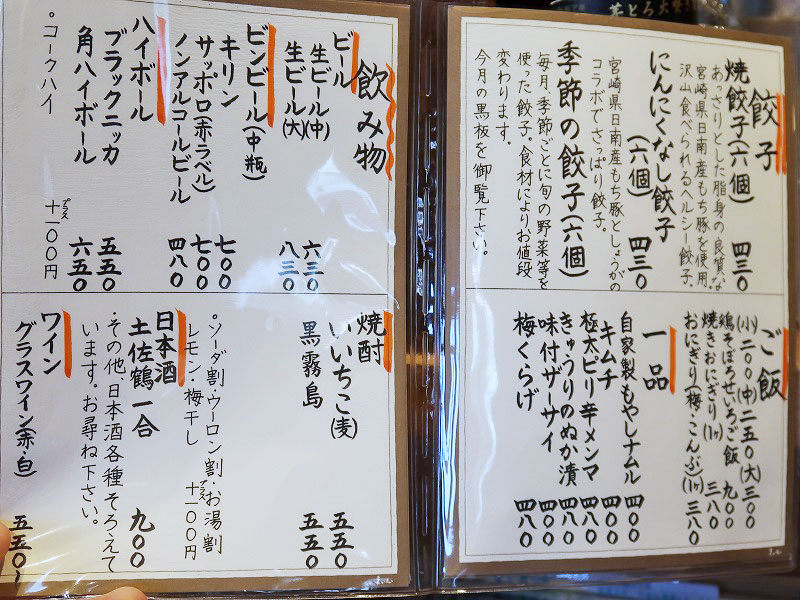 餃子
焼餃子(六個) 四三〇
あっさりとした脂身の良質な
宮崎県日南産もち豚を使用。
沢山食べられるヘルシー餃子。
にんにくなし餃子
(六個) 四三〇
宮崎県日南産もち豚としょうがの
コラボでさっぱり餃子。
季節の餃子(六個)
毎月、季節ごとに旬の野菜等を
使った餃子。食材によりお値段
変わります。
今月の黒板を御覧下さい。
ご飯
(小)二〇〇(中)二五〇(大)三〇〇
鶏そぼろせいろご飯 九〇〇
焼きおにぎり(1ヶ) 三八〇
おにぎり(梅・こんぶ)(1ヶ) 三八〇
一品
自家製もやしナムル 四〇〇
キムチ 四〇〇
極太ピリ辛メンマ 四八〇
きゅうりのぬか漬 四八〇
味付ザーサイ 四八〇
梅くらげ 四八〇
飲み物
ビール
生ビール(中) 六三〇
生ビール(大) 八三〇
ビンビール(中瓶)
キリン 七〇〇
サッポロ(赤ラベル) 七〇〇
ノンアルコールビール 四八〇
ハイボール
ブラックニッカ 五五〇
角ハイボール 六五〇
。コークハイ プラス十一〇〇円
焼酎
いいちこ(麦) 五五〇
黒霧島 五五〇
。ソーダ割・ウーロン割・お湯割
レモン・梅干し プラス十一〇〇円
日本酒
土佐鶴一合 九〇〇
・その他、日本酒各種そろえて
います。お尋ね下さい。
ワイン
グラスワイン(赤・白) 五五〇〜